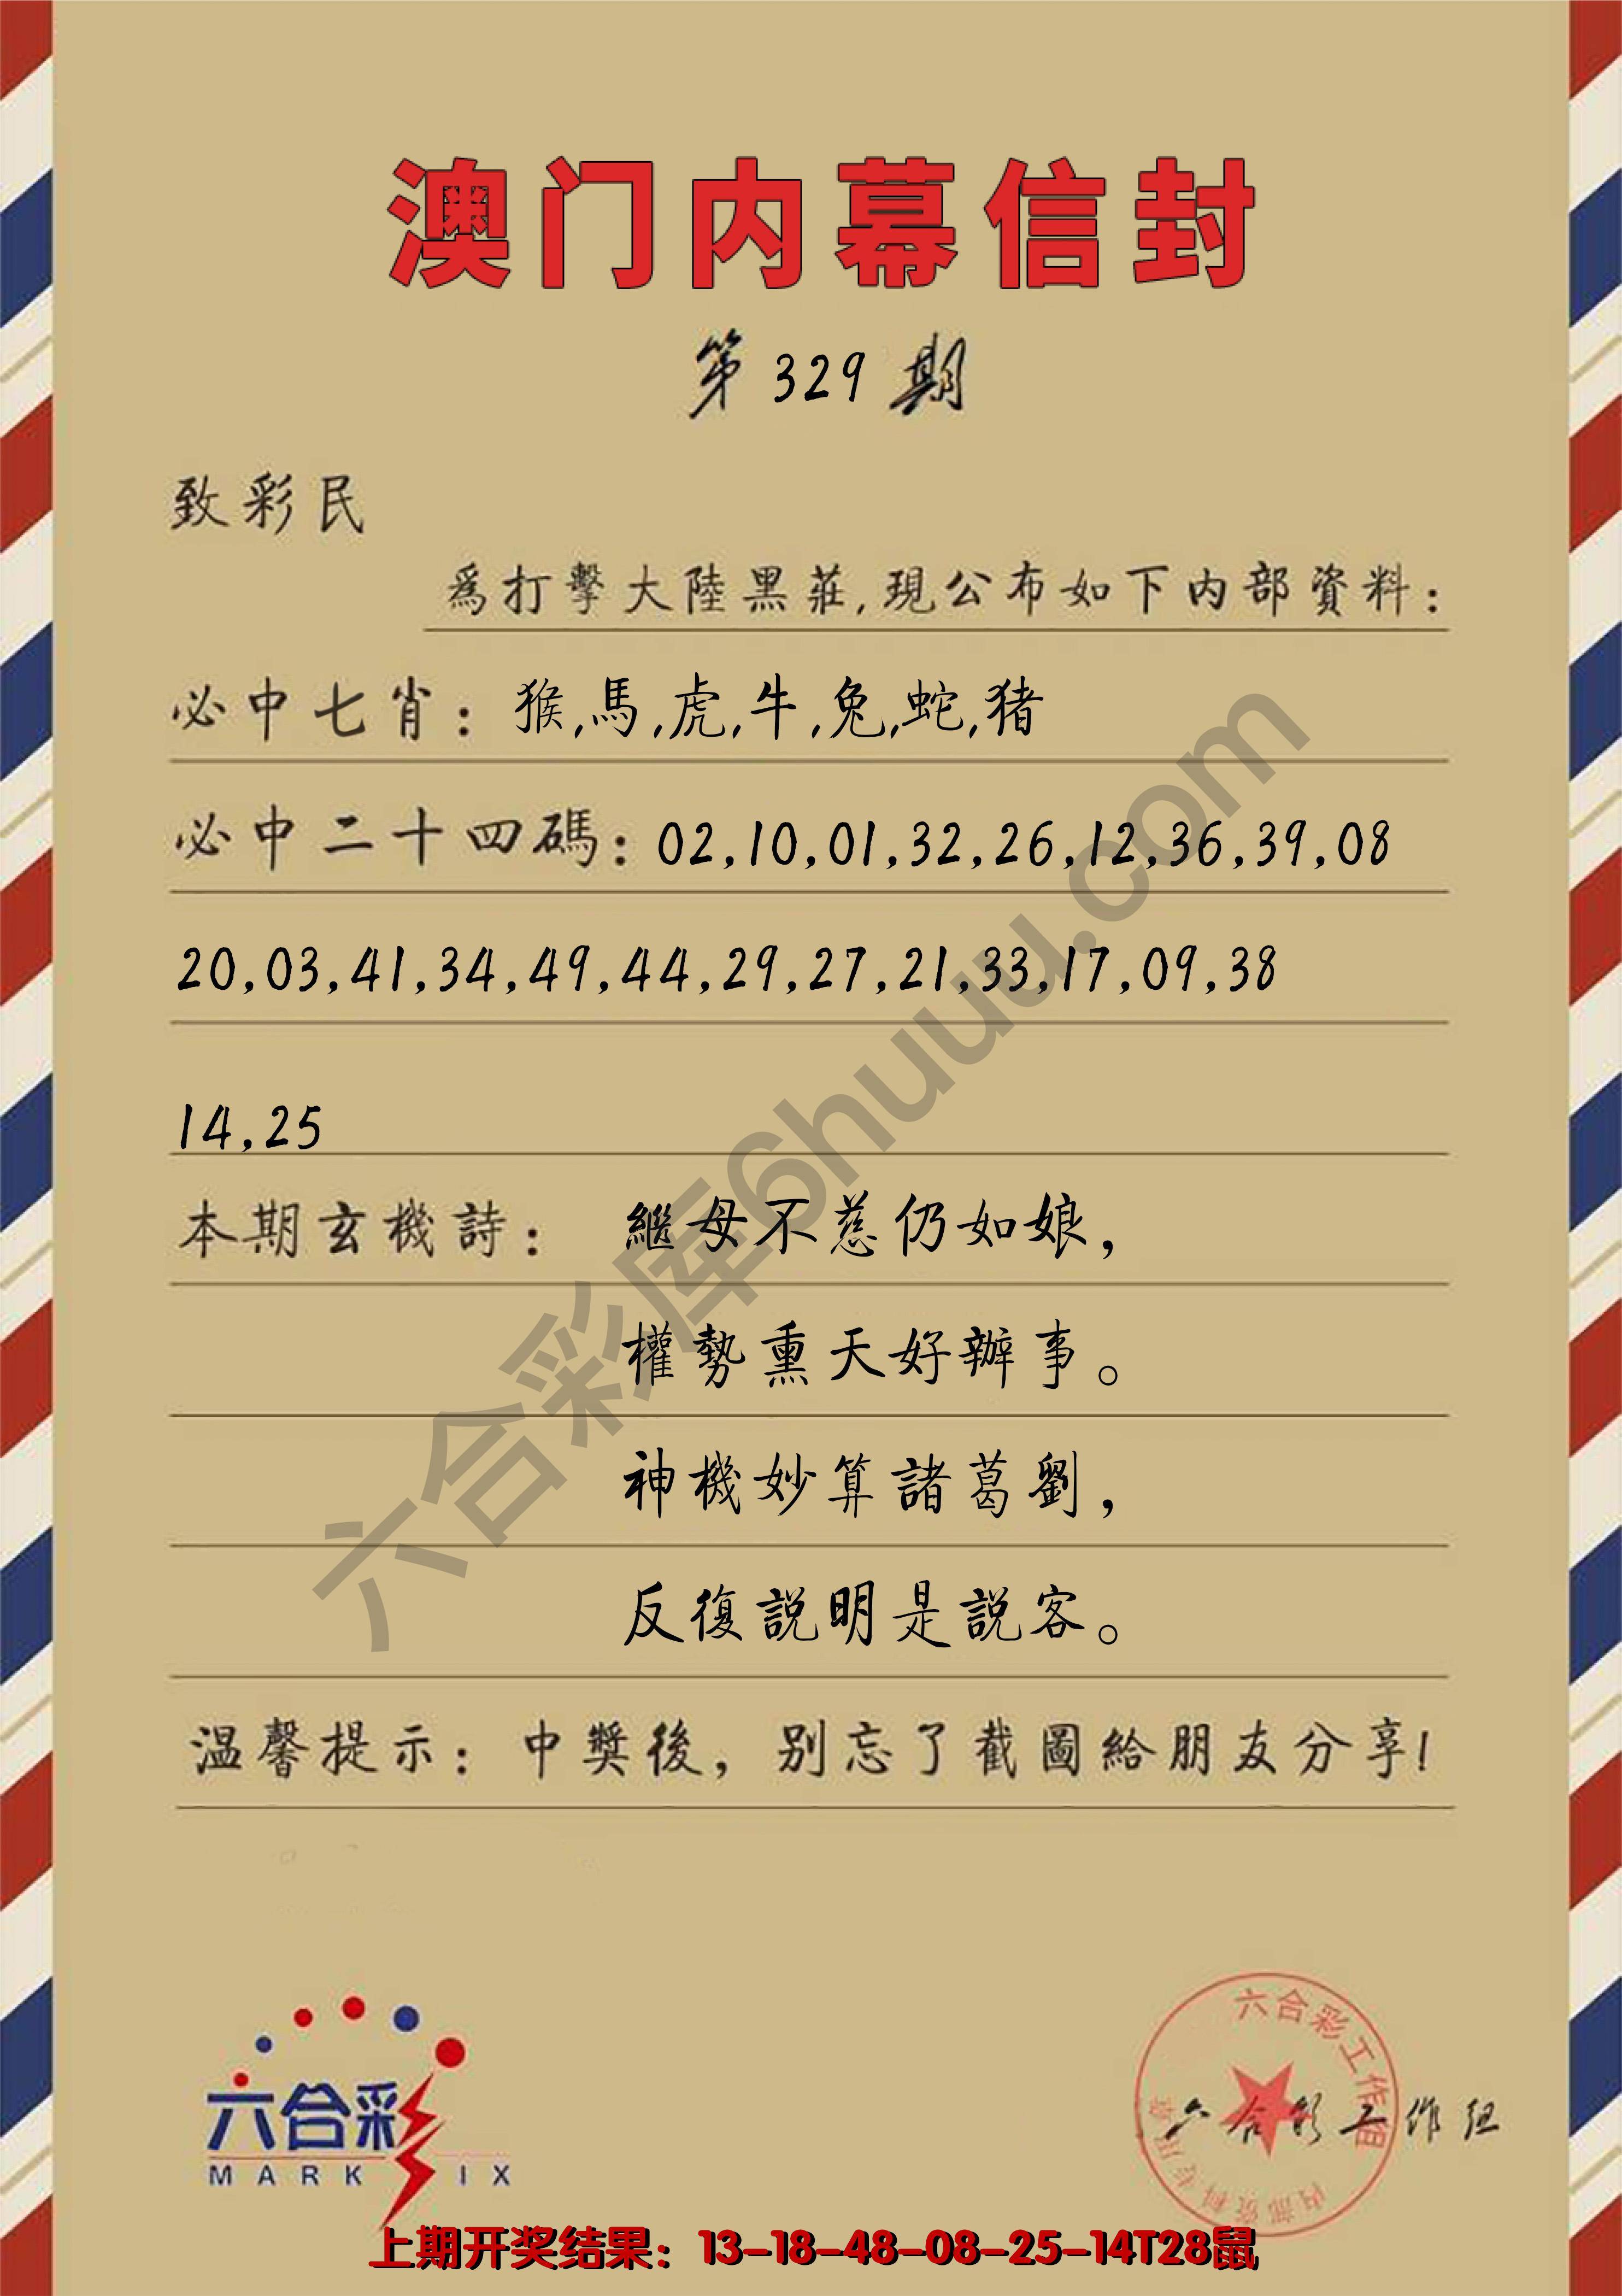 澳门内幕信封
第 329 期
致彩民
爲打擊大陸黑莊,現公布如下内部資料:
必中七肖: 猴,馬,虎,牛,兔,蛇,猪
必中二十四碼: 02,10,01,32,26,12,36,39,08
20,03,41,34,49,44,29,27,21,33,17,09,38
14,25
本期玄機詩: 繼母不慈仍如娘,
權勢熏天好辦事。
神機妙算諸葛劉,
反復説明是説客。
温馨提示: 中獎後, 别忘了截圖給朋友分享!
六合彩库6huuu.com
六合彩
MARK SIX
六合彩工作组
内部资料专用章
六合彩工作组
上期开奖结果: 13-18-48-08-25-14T28鼠